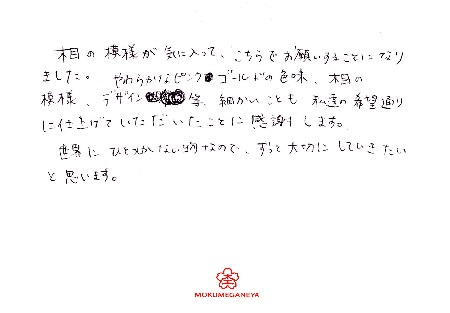 木目の模様が気に入って、こちらでお願いすることになり
ました。やわらかなピンクゴールドの色味、木目の
模様、デザイン等、細かいことも私達の希望通り
に仕上げていただいたことに感謝します。
世界にひとつしかない物なので、ずっと大切にしていきたい
と思います。
MOKUMEGANEYA